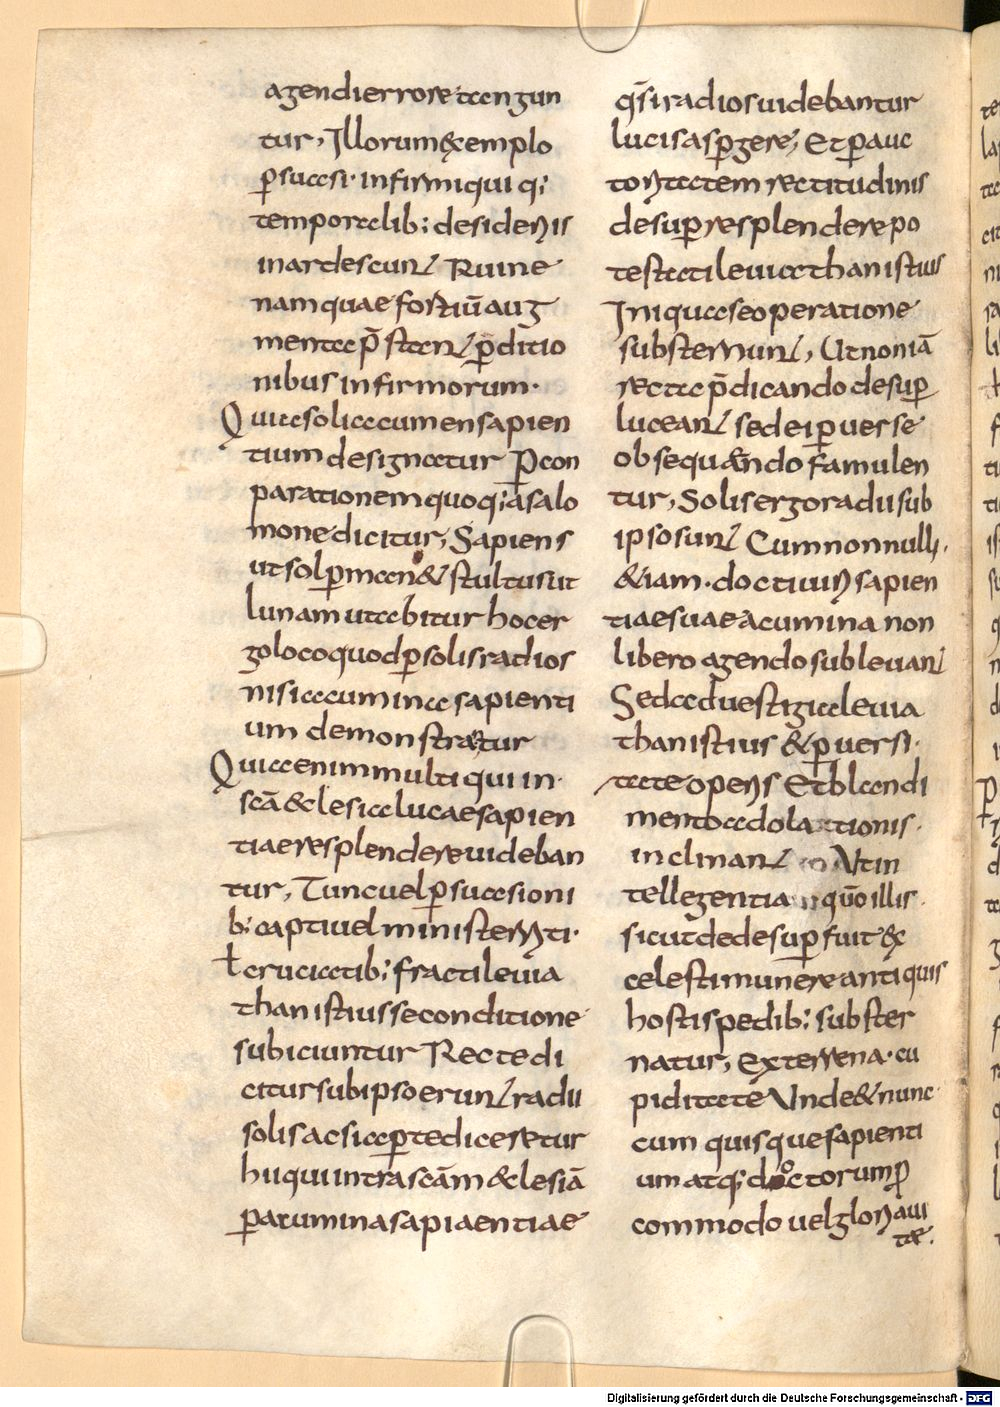 agendi errore tangun
tur, Illorum exemplo
ꝑsuasi· infirmi qui q;
temporalib; desideriis
inardescunt Ruine
nam quae fortiū aug
menta p̄stant ꝑditio
nibus infirmorum·
Quia solis acumen sapien
tium designatur Ꝑ con
parationem quoq; a salo
mone dicitur, Sapiens
ut sol ꝑman& stultus ut
lunam utabitur hoc er
go loco quod ꝑ solis radios
nisi acumina sapienti
um demonstratur
Quia enim multi qui in·
scā &clesia luca& sapien
tiae resplendere videban
tur, Tunc vel ꝑsuasioni
b; capti vel ministerii ti·
ł cruciatib; fracti levia
than istius se conditione
subiciuntur Recte di
citur sub ipso erunt radii
solis ac si aꝑte diceretur
hii qui intra scām &clesiā
ꝑ acumina sapiaentiae
q̄si radios videbantur
lucis aspergere, Et ꝑ auc
toritatem rectitudinis
desuꝑ resplendere po
testati leviathan istius
Iniqua se operatione
substernunt, Ut non iā
recta p̄dicando desuꝑ
luceant sed ei ꝑverse
obsequendo famulen
tur, Solis ergo radii sub
ipso sunt Cum nonnulli·
&iam· docti viri sapien
tiae suae acumina non
libero agendo sublevant
Sed ad vestigia levia
than istius & ꝑversi·
tate operis Et blandi
mento adolationis·
inclinant Ut in
tellegentia quō illis·
sicut de desuꝑ fuit ex
celesti munere antiquis
hostis pedib; subster
natur, ex terrena· cu
piditate Unde & nunc
cum quisque sapienti
um atq; doctorum ꝑ
commodo vel gloria vi
tae·
Digitalisierung gefördert durch die Deutsche Forschungsgemeinschaft - DFG